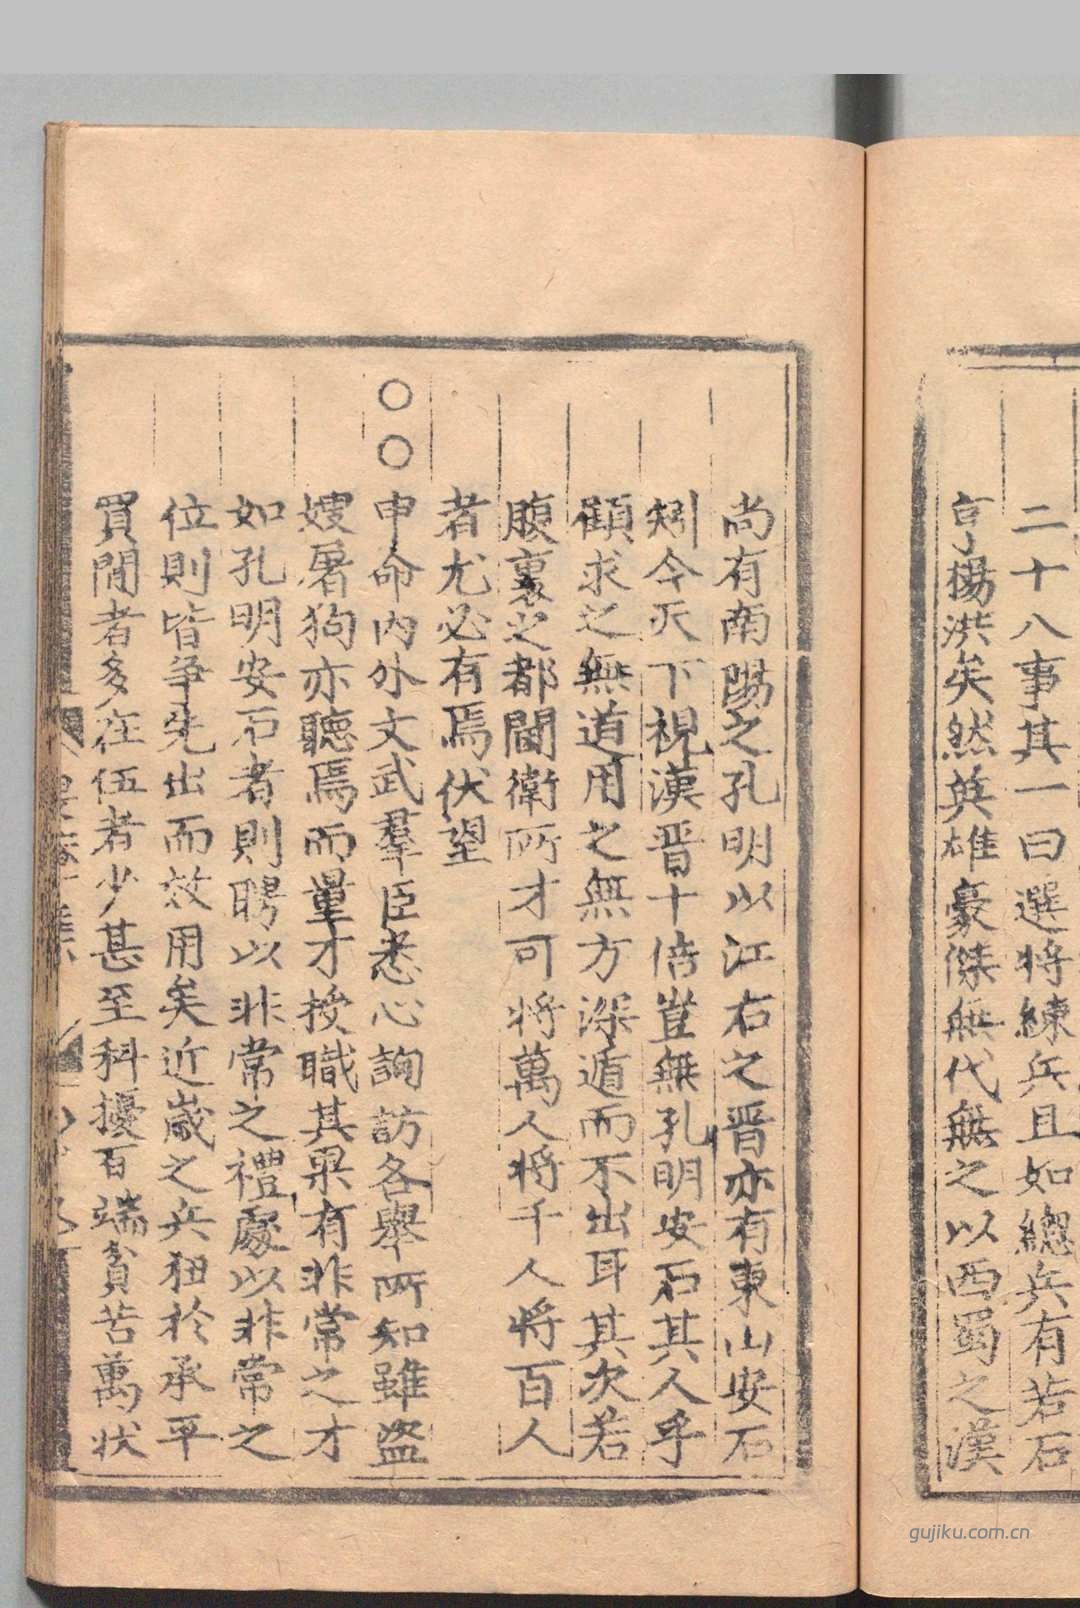 二十八事其一曰選將練兵且如總兵有若石
亨楊洪矣然英雄豪傑無代無之以西蜀之漢
尚有南陽之孔明以江右之晋亦有東山安石
矧今天下視漢晋十倍豈無孔明安石其人乎
顧求之無道用之無方深遁而不出耳其次若
腹裏之都閫衛所才可將萬人將千人將百人
者尤必有焉伏望
○○申命内外文武羣臣悉心詢訪各舉所知雖盗
嫂屠狗亦聽焉而量才授職其果有非常之才
如孔明安石者則聘以非常之禮處以非常之
位則皆争先出而效用矣近歲之兵狃於承平
買閒者多在伍者少甚至科擾百端貧苦萬状
gujiku.com.cn